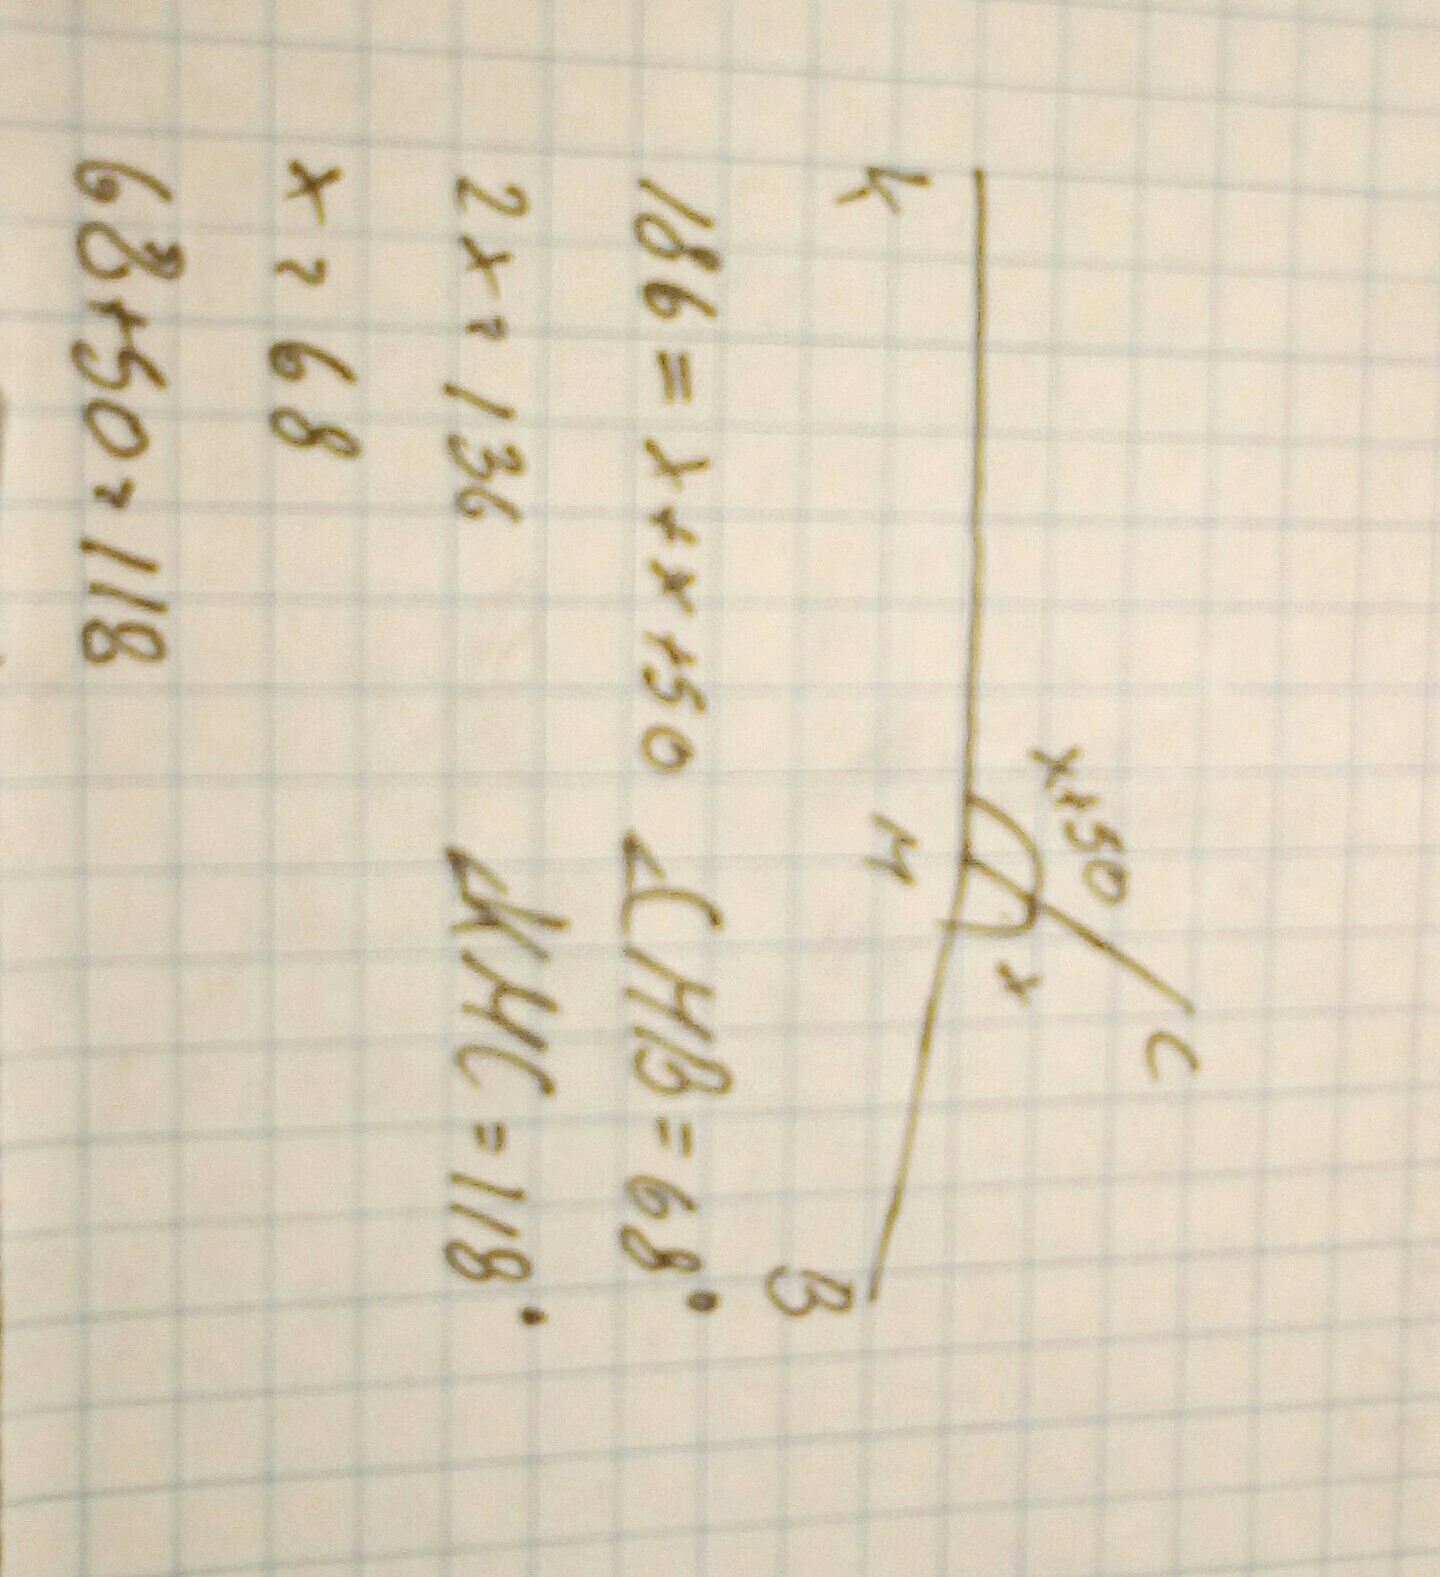 C
x+50
x
K
M
B
186 = x+x+50
∠CMB = 68°
2x = 136
∠KMC = 118°
x = 68
68+50=118